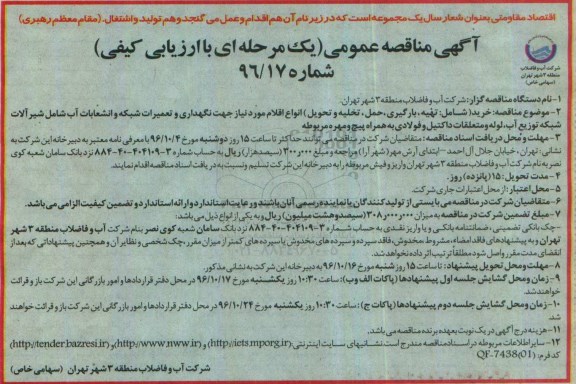 اقتصاد مقاومتی بعنوان شعار سال یک مجموعه است که در زیر نام آن هم اقدام و عمل می گنجد و هم تولید و اشتغال. (مقام معظم رهبری)
آگهی مناقصه عمومی (یک مرحله ای با ارزیابی کیفی)
شماره ۹۶/۱۷
شرکت آب و فاضلاب
منطقه ۳ شهر تهران
(سهامی خاص)
۱- نام دستگاه مناقصه گزار: شرکت آب و فاضلاب منطقه ۳ شهر تهران.
۲- موضوع مناقصه: خرید (شامل: تهیه، بارگیری، حمل، تخلیه و تحویل) انواع اقلام مورد نیاز جهت نگهداری و تعمیرات شبکه و انشعابات آب شامل شیرآلات
شبکه توزیع آب، لوله و متعلقات داکتیل و فولادی به همراه پیچ و مهره مربوطه
۳- مهلت و محل دریافت اسناد مناقصه: متقاضیان شرکت در مناقصه می توانند حداکثر تا ساعت ۱۵ روز دوشنبه مورخ ۹۶/۱۰/۴ با معرفی نامه معتبر به دبیرخانه این شرکت به
نشانی: تهران، خیابان جلال آل احمد-ابتدای آرش مهر (شهرآرا) مراجعه و مبلغ ۳۰۰٫۰۰۰ (سیصدهزار) ریال به حساب شماره ۳-۴۰۴۱۰۹-۴۰-۸۸۴ نزد بانک سامان شعبه کوی
نصر به نام شرکت آب و فاضلاب منطقه ۳ شهر تهران واریز و فیش مربوطه را به دبیرخانه این شرکت تسلیم و نسبت به دریافت اسناد مناقصه اقدام نمایند.
۴- مدت تحویل: ۱۵ (پانزده) روز.
۵- محل اعتبار: از محل اعتبارات جاری شرکت.
۶- متقاضیان شرکت در مناقصه می بایستی از تولید کنندگان یا نماینده رسمی آنان باشند و رعایت استاندارد و ارائه استاندارد و تضمین کیفیت الزامی می باشد.
۷- مبلغ تضمین شرکت در مناقصه به میزان ۳۰۸٫۰۰۰٫۰۰۰ (سیصدوهشت میلیون) ریال و به یکی از انواع ذیل می باشد:
-چک بانکی تضمینی، ضمانتنامه بانکی و یا واریز نقدی به حساب شماره ۳-۴۰۴۱۰۹-۴۰-۸۸۴ نزد بانک سامان شعبه کوی نصر بنام شرکت آب و فاضلاب منطقه ۳ شهر
تهران و به پیشنهادهای فاقد امضاء، مشروط، مخدوش، فاقد سپرده و سپرده های مخدوش یا سپرده های کمتر از میزان مقرر، چک شخصی و نظایر آن و همچنین پیشنهاداتی که بعد از
انقضای مدت مقرر واصل شود مطلقاً ترتیب اثر داده نخواهد شد.
۸- مهلت و محل تحویل پیشنهاد: تا ساعت ۱۵ روز شنبه مورخ ۹۶/۱۰/۱۶ به دبیرخانه این شرکت به نشانی مذکور.
۹- زمان و محل گشایش جلسه اول پیشنهادها (پاکات الف و ب): ساعت ۱۰:۳۰ روز یکشنبه مورخ ۹۶/۱۰/۱۷ در محل دفتر قراردادها و امور بازرگانی این شرکت باز و قرائت
خواهند شد.
۱۰- زمان و محل گشایش جلسه دوم پیشنهادها (پاکات ج): ساعت ۱۰:۳۰ روز یکشنبه مورخ ۹۶/۱۰/۲۴ در محل دفتر قراردادها و امور بازرگانی این شرکت باز و قرائت خواهند
شد.
۱۱- هزینه درج آگهی در یک نوبت بعهده برنده مناقصه می باشد.
۱۲- سایر اطلاعات مربوطه در اسناد مناقصه مندرج است نشانیهای سایت اینترنتی: (http://iets.mporg.ir) و (http://www.nww.ir) و (http://tender.bazresi.ir)
کد فرم: QF-7438(01)
شرکت آب و فاضلاب منطقه ۳ شهر تهران (سهامی خاص)